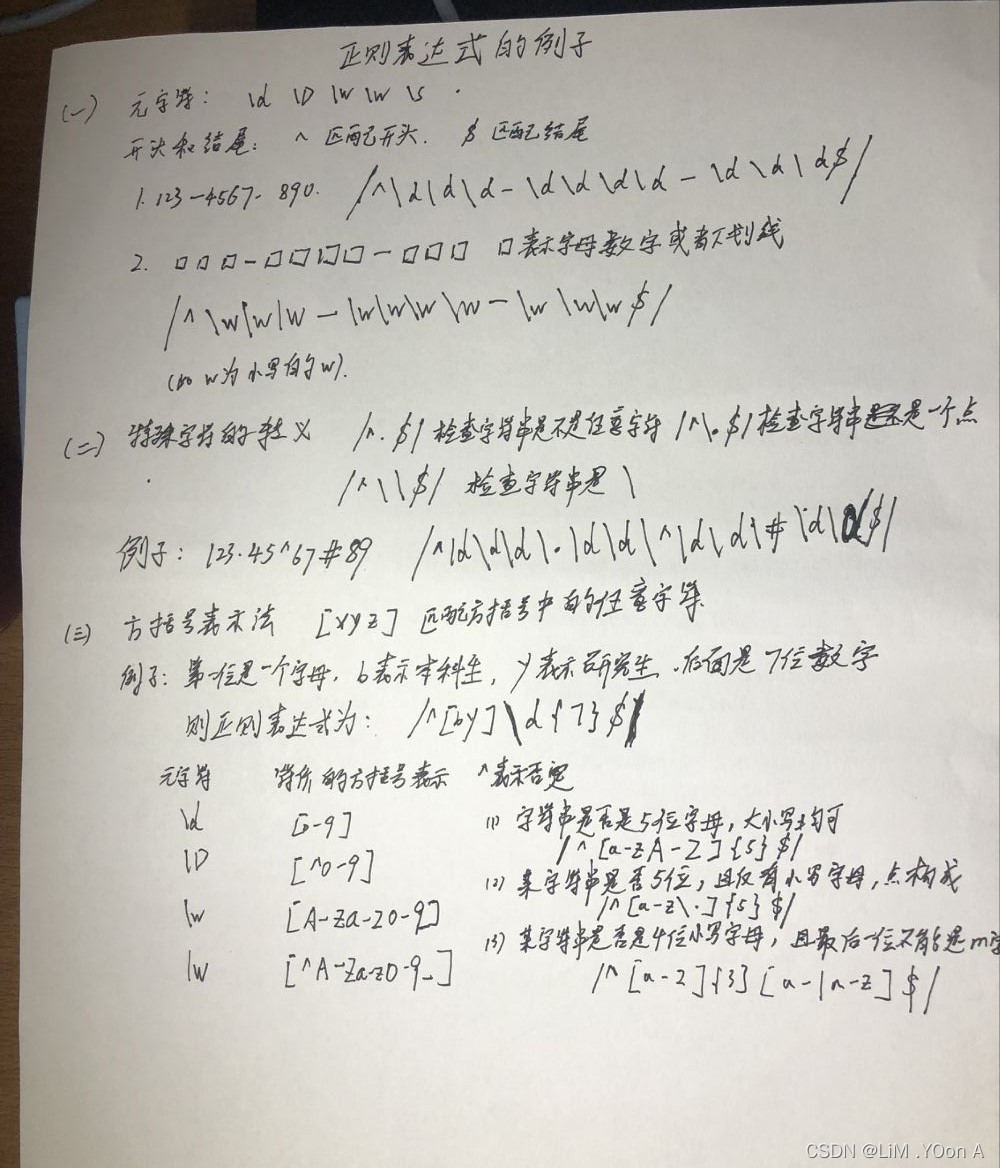 正则表达式的例子
(一) 元字符: \d \D \w \W \s .
开头和结尾: ^ 匹配开头. $ 匹配结尾
1. 123-4567-890. /^\d\d\d-\d\d\d\d-\d\d\d$/
2. □□□-□□□□-□□□ □表示字母数字或者下划线
/^\w\w\w-\w\w\w\w-\w\w\w$/
w为小写的w).
(二) 特殊字符的转义 /^.$/ 检查字符串是不是任意字符 /^\.$/ 检查字符串是不是一个点
/^\\$/ 检查字符串是 \
例子: 123.45^67#89 /^\d\d\d\.\d\d\^\d\d\#\d\d$/
(三) 方括号表示法 [xyz] 匹配方括号中的任意字符.
例子: 第一位是一个字母, b表示本科生, y表示研究生. 后面是7位数字
则正则表达式为: /^[by]\d{7}$/
元字符 等价的方括号表示 ^表示否定
\d [0-9] (1) 字符串是否是5位字母, 大小写均可
/^[a-zA-Z]{5}$/
\D [^0-9] (2) 某字符串是否5位, 且仅有小写字母, 点构成
/^[a-z\.]{5}$/
\w [A-Za-z0-9] (3) 某字符串是否是4位小写字母, 且最后一位不能是m字
\W [^A-Za-z0-9_] /^[a-z]{3}[a-ln-z]$/
CSDN @LiM .YOon A